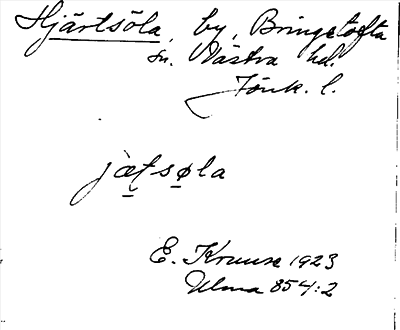 Hjärtsöla, by, Bringetofta
sn. Västra hd.
Jönk. l.
jæ̀t̯sø̣la
E. Kruuse 1923
Ulma 854:2